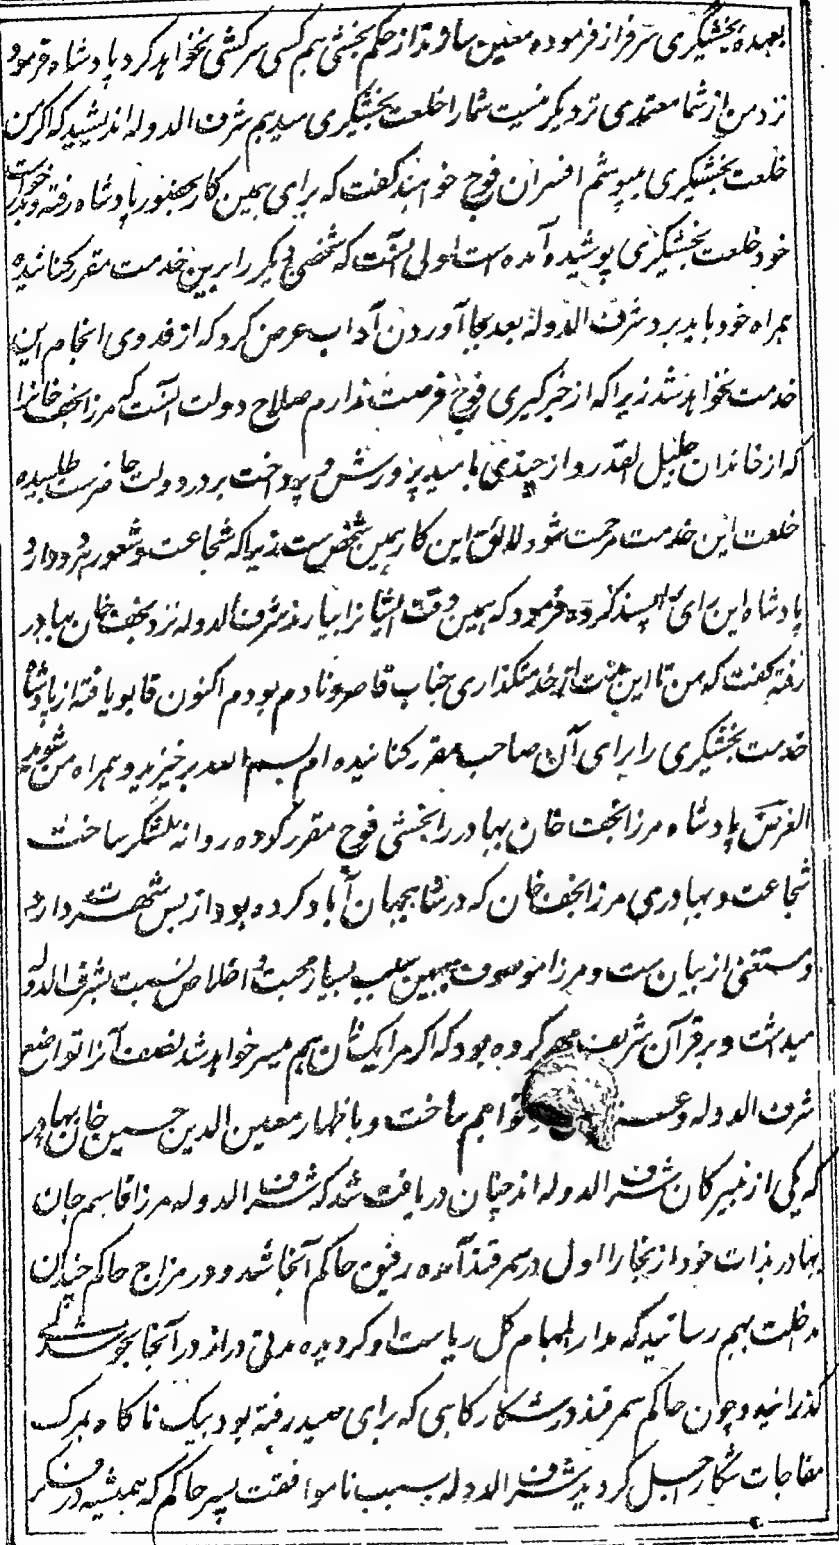 بعهدهٔ بخشیگری سرفراز فرموده معین سازند از حکم بخشی هم کسی سرکشی نخواهد کرد پادشاه فرمود
نزد من از شما معتمدی نزدیکتر نیست شما را خلعت بخشیگری میدهم شرف الدوله اندیشید که اگر من
خلعت بخشیگری میپوشم افسران فوج خواهند گفت که برای همین کار بحضور پادشاه رفته و بدرخواست
خود خلعت بخشیگری پوشیده آمده است اولی آنست که شخصی دیگر را برین خدمت مقرر کنانیده
همراه خود باید برد شرف الدوله بعد بجا آوردن آداب عرض کرد که از فدوی انجام این
خدمت نخواهد شد زیرا که از خبرگیری فوج فرصت ندارم صلاح دولت آنست که مرزا نجف خانرا
که از خاندان جلیل القدر و از چندی بامید پرورش و پرداخت بر در دولت حاضرست طلبیده
خلعت این خدمت مرحمت شود لائق این کار همین شخص ست زیرا که شجاعت و شعور هر دو دارد
پادشاه این رای را پسند کرده فرمود که همین وقت ایشانرا بیارند شرف الدوله نزد نجف خان بهادر
رفته گفت که من تا این مدت از خدمتگذاری جناب قاصر و نادم بودم اکنون قابو یافته از پادشاه
خدمت بخشیگری را برای آن صاحب مقرر کنانیده ام بسم الله برخیزید و همراه من شوید
الغرض پادشاه مرزا نجف خان بهادر را بخشی فوج مقرر کرده روانه لشکر ساخت
شجاعت و بهادری مرزا نجف خان که در شاهجهان آباد کرده بود از بس شهرت دارد
و مستغنی از بیان ست و مرزا موصوف بهمین سبب بسیار محبت و اخلاص نسبت بشرف الدوله
میداشت و بر قرآن شریف مهر کرده بود که اگر مرا یک نان هم میسر خواهد شد نصف آنرا تواضع
شرف الدوله و خواهم ساخت و باظهار معین الدین حسین خان بهادر
که یکی از نبیرگان شرف الدوله اند چنان دریافت شد که شرف الدوله مرزا قاسم جان
بهادر بذات خود از بخارا اول در سمرقند آمده رفیق حاکم آنجا شد و در مزاج حاکم چندان
مدخلت بهم رسانید که مدار المهام کل ریاست او گردیده مدتی دراز در آنجا بخوشدلی
گذرانید و چون حاکم سمرقند در شکارگاهی که برای صید رفته بود بیک ناگاه بمرگ
مفاجات شکار اجل گردید شرف الدوله بسبب ناموافقت پسر حاکم که همیشه در فکر